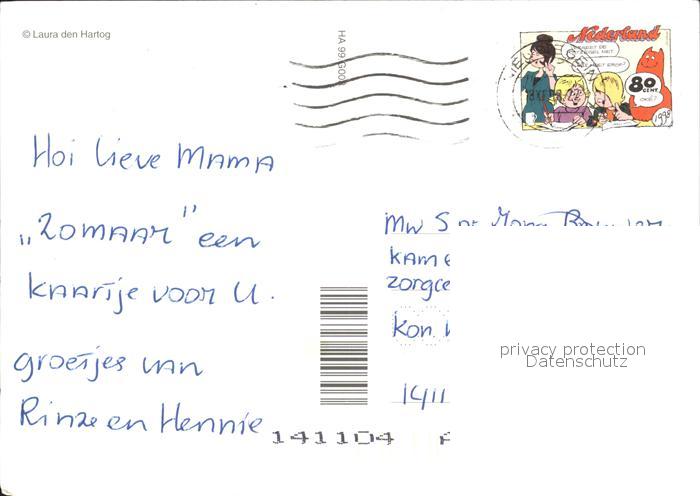 © Laura den Hartog
HA 99 G008
Nederland
80
CENT
1998
Hoi lieve MAMA
„ZOMAAR" een
KAARTje voor U.
groetjes van
Rinze en Hennie
Mw
KAME
zorgce
Kon.
1411
privacy protection
Datenschutz
141104